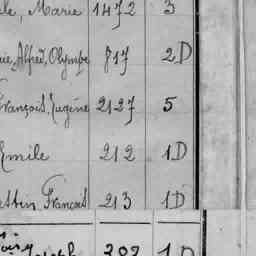 Marie 1472 3
Alfred, Olympe 817 2D
François, Eugène 2127 5
Emile 212 1D
François 213 1D
202 1D